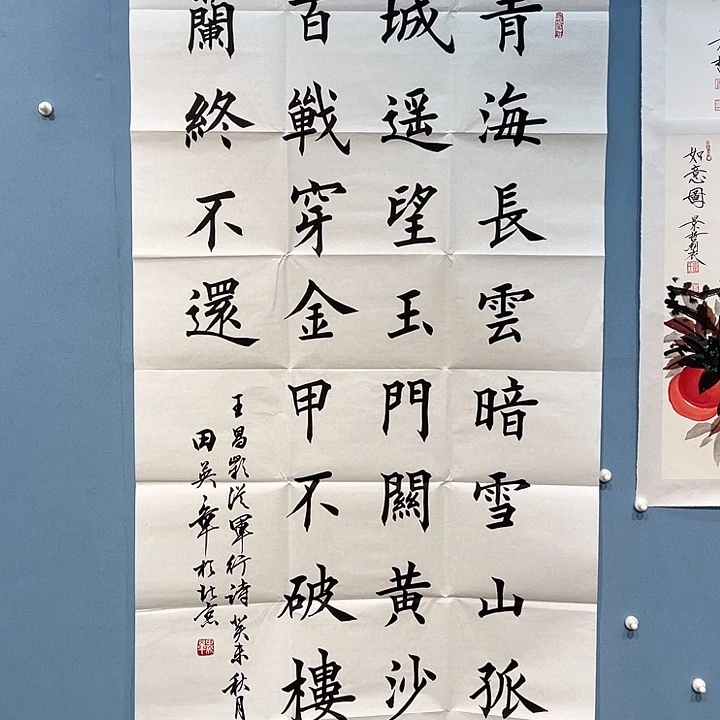 青海長雲暗雪山孤
城遥望玉門關黄沙
百戰穿金甲不破樓
蘭終不還
王昌齡從軍行詩癸未秋月
田英章於北京
如意圖